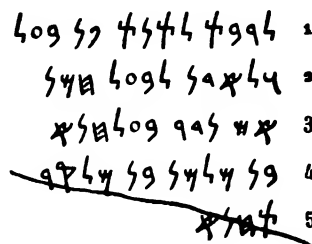 𐤋𐤓𐤁𐤕 𐤋𐤕𐤍𐤕 𐤐𐤍 𐤁𐤏𐤋 1
𐤅𐤋𐤀𐤃𐤍 𐤋𐤁𐤏𐤋 𐤇𐤌𐤍 2
𐤀𐤔 𐤍𐤃𐤓 𐤁𐤏𐤋𐤇𐤍𐤀 3
𐤁𐤍 𐤁𐤍 𐤌𐤋𐤒𐤓 4
𐤕𐤇𐤍𐤀 5